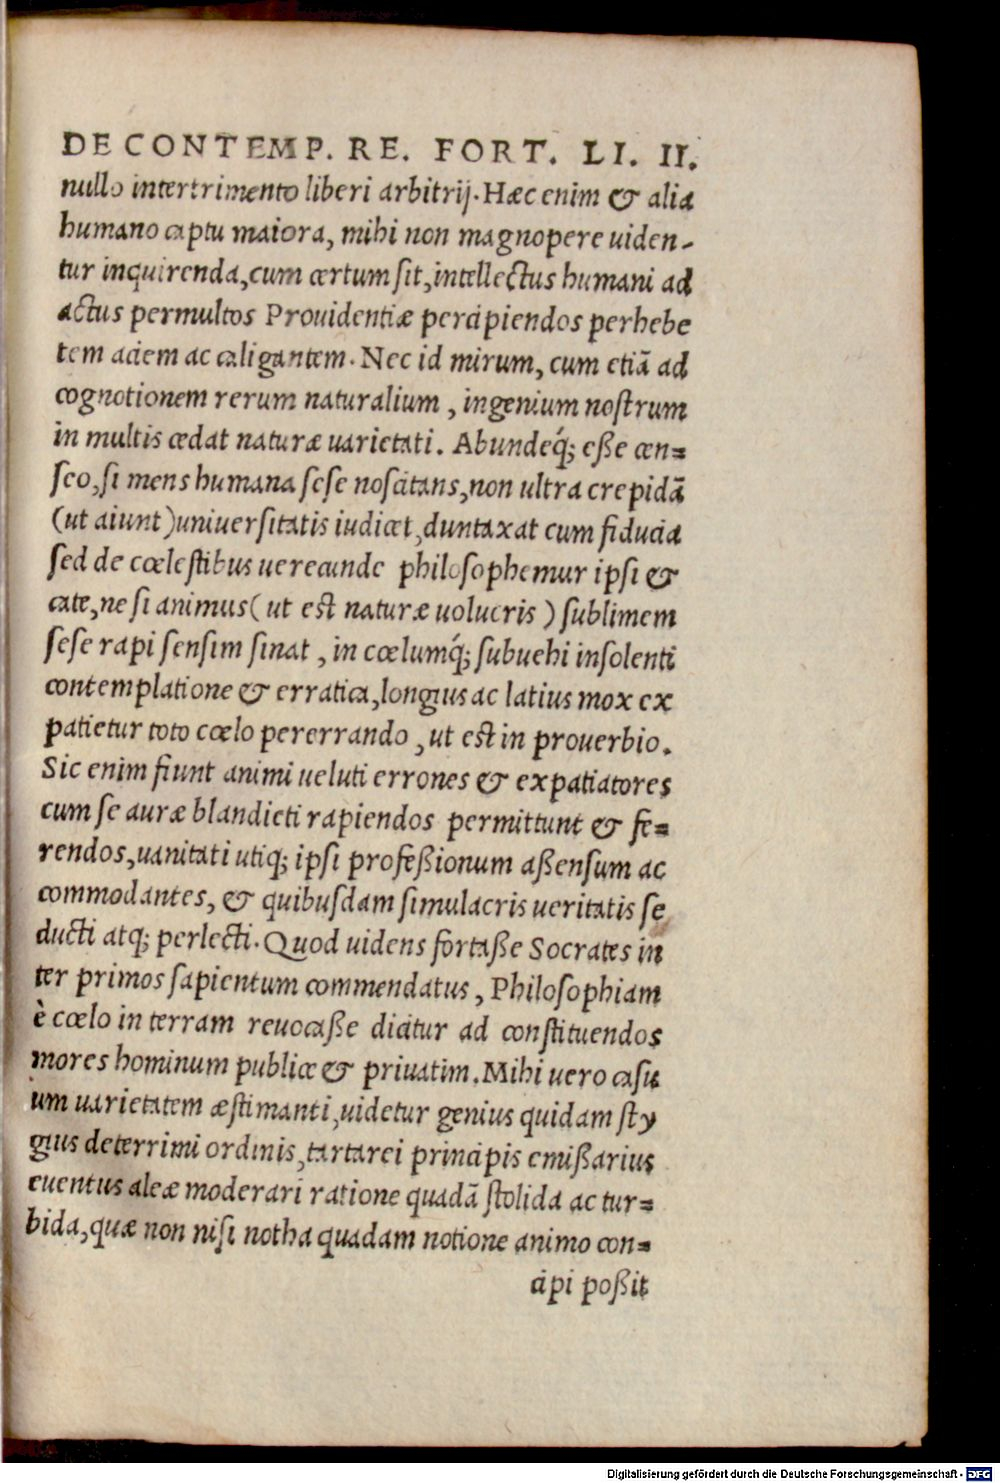 DE CONTEMP. RE. FORT. LI. II.
nullo intertrimento liberi arbitrij. Hæc enim & alia
humano captu maiora, mihi non magnopere uiden-
tur inquirenda, cum certum sit, intellectus humani ad
actus permultos Prouidentiæ percipiendos perhebe
tem aciem ac caligantem. Nec id mirum, cum etiã ad
cognotionem rerum naturalium, ingenium nostrum
in multis cedat naturæ uarietati. Abundeq́; eße cen=
seo, si mens humana sese noscitans, non ultra crepidã
(ut aiunt) uniuersitatis iudicet, duntaxat cum fiducia
sed de cœlestibus uerecunde philosophemur ipsi &
cate, ne si animus (ut est naturæ uolucris) sublimem
sese rapi sensim sinat, in cœlumq́; subuehi insolenti
contemplatione & erratica, longius ac latius mox ex
patietur toto cœlo pererrando, ut est in prouerbio.
Sic enim fiunt animi ueluti errones & expatiatores
cum se auræ blandienti rapiendos permittunt & fe=
rendos, uanitati utiq; ipsi profeßionum aßensum ac
commodantes, & quibusdam simulacris ueritatis se
ducti atq; perlecti. Quod uidens fortaße Socrates in
ter primos sapientum commendatus, Philosophiam
è cœlo in terram reuocaße dicitur ad constituendos
mores hominum publice & priuatim. Mihi uero casu
um uarietatem æstimanti, uidetur genius quidam sty
gius deterrimi ordinis, tartarei principis emißarius
euentus aleæ moderari ratione quadã stolida ac tur=
bida, quæ non nisi notha quadam notione animo con=
cipi poßit
Digitalisierung gefördert durch die Deutsche Forschungsgemeinschaft - DFG